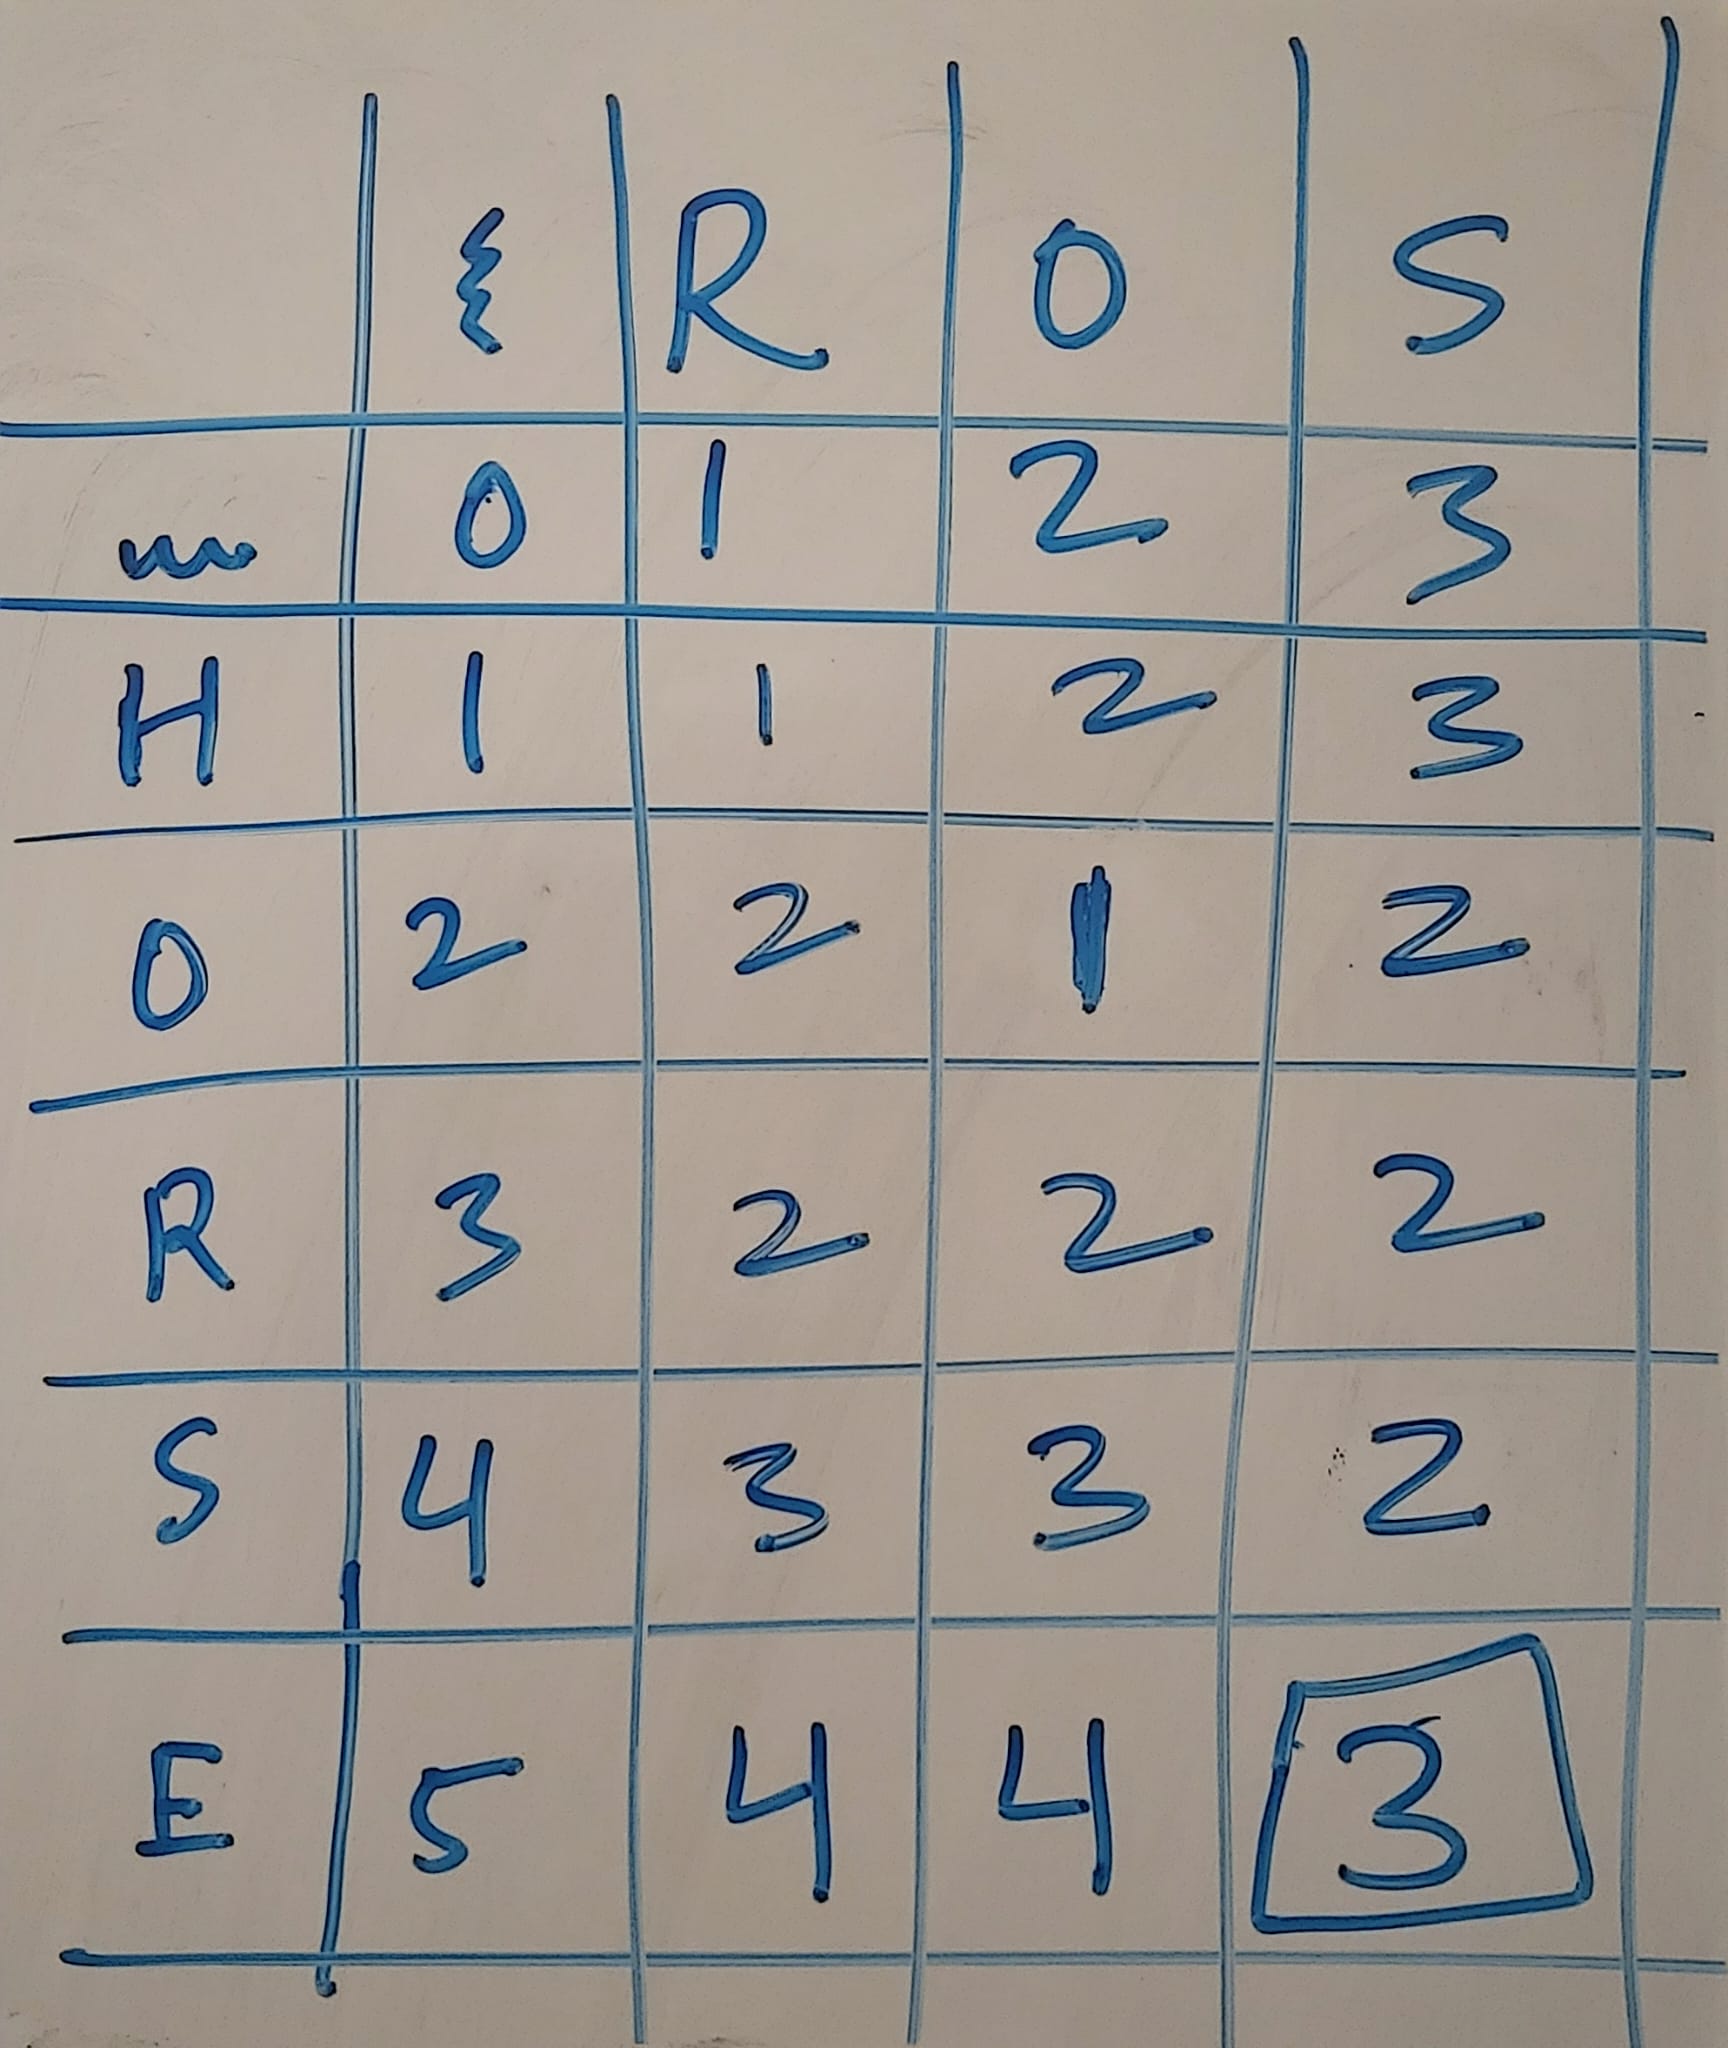 ε R O S
ε 0 1 2 3
H 1 1 2 3
O 2 2 1 2
R 3 2 2 2
S 4 3 3 2
E 5 4 4 3